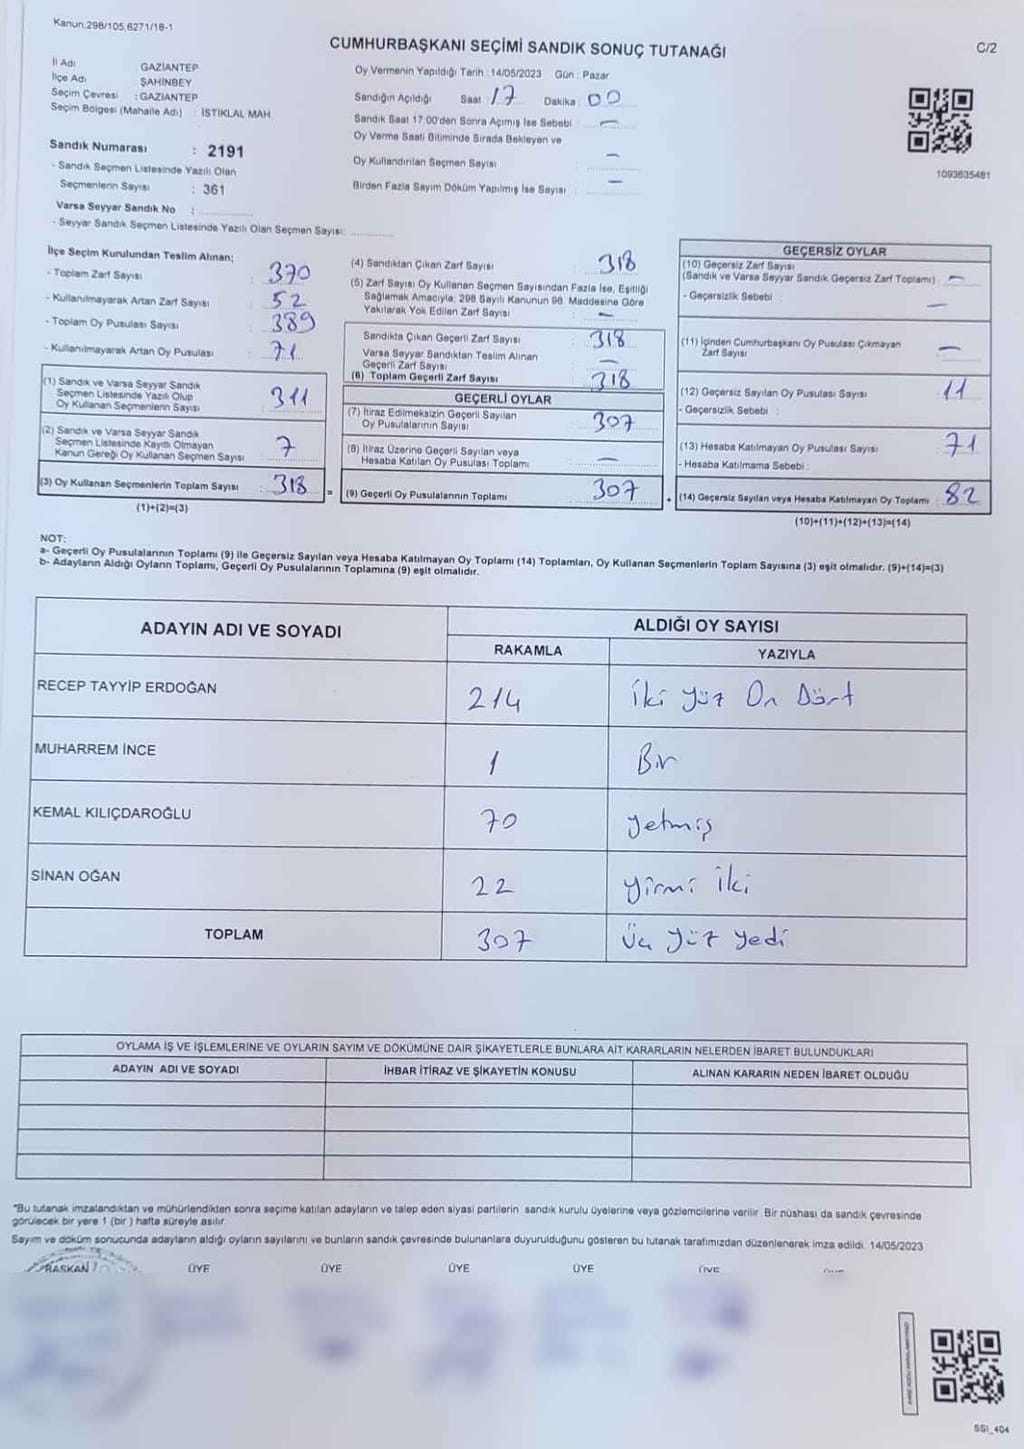 Kanun.298/105,6271/18-1
CUMHURBAŞKANI SEÇİMİ SANDIK SONUÇ TUTANAĞI
C/2
İl Adı GAZİANTEP
İlçe Adı ŞAHİNBEY
Seçim Çevresi : GAZİANTEP
Seçim Bölgesi (Mahalle Adı) : İSTİKLAL MAH.
Sandık Numarası : 2191
- Sandık Seçmen Listesinde Yazılı Olan
Seçmenlerin Sayısı : 361
Varsa Seyyar Sandık No :
- Seyyar Sandık Seçmen Listesinde Yazılı Olan Seçmen Sayısı:
Oy Vermenin Yapıldığı Tarih : 14/05/2023 Gün : Pazar
Sandığın Açıldığı Saat : 17 Dakika : 00
Sandık Saat 17:00'den Sonra Açımış İse Sebebi : —
Oy Verme Saati Bitiminde Sırada Bekleyen ve
Oy Kullandırılan Seçmen Sayısı : —
Birden Fazla Sayım Döküm Yapılmış İse Sayısı : —
1093635481
İlçe Seçim Kurulundan Teslim Alınan;
- Toplam Zarf Sayısı : 370
- Kullanılmayarak Artan Zarf Sayısı : 52
- Toplam Oy Pusulası Sayısı : 389
- Kullanılmayarak Artan Oy Pusulası : 71
(1) Sandık ve Varsa Seyyar Sandık
Seçmen Listesinde Yazılı Olup
Oy Kullanan Seçmenlerin Sayısı : 311
(2) Sandık ve Varsa Seyyar Sandık
Seçmen Listesinde Kayıtlı Olmayan
Kanun Gereği Oy Kullanan Seçmen Sayısı : 7
(3) Oy Kullanan Seçmenlerin Toplam Sayısı : 318 =
(1)+(2)=(3)
(4) Sandıktan Çıkan Zarf Sayısı : 318
(5) Zarf Sayısı Oy Kullanan Seçmen Sayısından Fazla İse, Eşitliği
Sağlamak Amacıyla, 298 Sayılı Kanunun 98. Maddesine Göre
Yakılarak Yok Edilen Zarf Sayısı : —
Sandıkta Çıkan Geçerli Zarf Sayısı : 318
Varsa Seyyar Sandıktan Teslim Alınan
Geçerli Zarf Sayısı : —
(6) Toplam Geçerli Zarf Sayısı : 318
GEÇERLİ OYLAR
(7) İtiraz Edilmeksizin Geçerli Sayılan
Oy Pusulalarının Sayısı : 307
(8) İtiraz Üzerine Geçerli Sayılan veya
Hesaba Katılan Oy Pusulası Toplamı : —
(9) Geçerli Oy Pusulalarının Toplamı : 307 +
GEÇERSİZ OYLAR
(10) Geçersiz Zarf Sayısı
(Sandık ve Varsa Seyyar Sandık Geçersiz Zarf Toplamı) : —
- Geçersizlik Sebebi : —
(11) İçinden Cumhurbaşkanı Oy Pusulası Çıkmayan
Zarf Sayısı : —
(12) Geçersiz Sayılan Oy Pusulası Sayısı : 11
- Geçersizlik Sebebi :
(13) Hesaba Katılmayan Oy Pusulası Sayısı : 71
- Hesaba Katılmama Sebebi :
(14) Geçersiz Sayılan veya Hesaba Katılmayan Oy Toplamı : 82
(10)+(11)+(12)+(13)=(14)
NOT:
a- Geçerli Oy Pusulalarının Toplamı (9) ile Geçersiz Sayılan veya Hesaba Katılmayan Oy Toplamı (14) Toplamları, Oy Kullanan Seçmenlerin Toplam Sayısına (3) eşit olmalıdır. (9)+(14)=(3)
b- Adayların Aldığı Oyların Toplamı, Geçerli Oy Pusulalarının Toplamına (9) eşit olmalıdır.
ADAYIN ADI VE SOYADI ALDIĞI OY SAYISI
RAKAMLA YAZIYLA
RECEP TAYYİP ERDOĞAN 214 İki yüz On Dört
MUHARREM İNCE 1 Bir
KEMAL KILIÇDAROĞLU 70 yetmiş
SİNAN OĞAN 22 yirmi İki
TOPLAM 307 Üç yüz yedi
OYLAMA İŞ VE İŞLEMLERİNE VE OYLARIN SAYIM VE DÖKÜMÜNE DAİR ŞİKAYETLERLE BUNLARA AİT KARARLARIN NELERDEN İBARET BULUNDUKLARI
ADAYIN ADI VE SOYADI İHBAR İTİRAZ VE ŞİKAYETİN KONUSU ALINAN KARARIN NEDEN İBARET OLDUĞU
"Bu tutanak imzalandıktan ve mühürlendikten sonra seçime katılan adayların ve talep eden siyasi partilerin sandık kurulu üyelerine veya gözlemcilerine verilir. Bir nüshası da sandık çevresinde
görülecek bir yere 1 (bir) hafta süreyle asılır.
Sayım ve döküm sonucunda adayların aldığı oyların sayılarını ve bunların sandık çevresinde bulunanlara duyurulduğunu gösteren bu tutanak tarafımızdan düzenlenerek imza edildi. 14/05/2023
BAŞKAN ÜYE ÜYE ÜYE ÜYE ÜYE
SSI_404